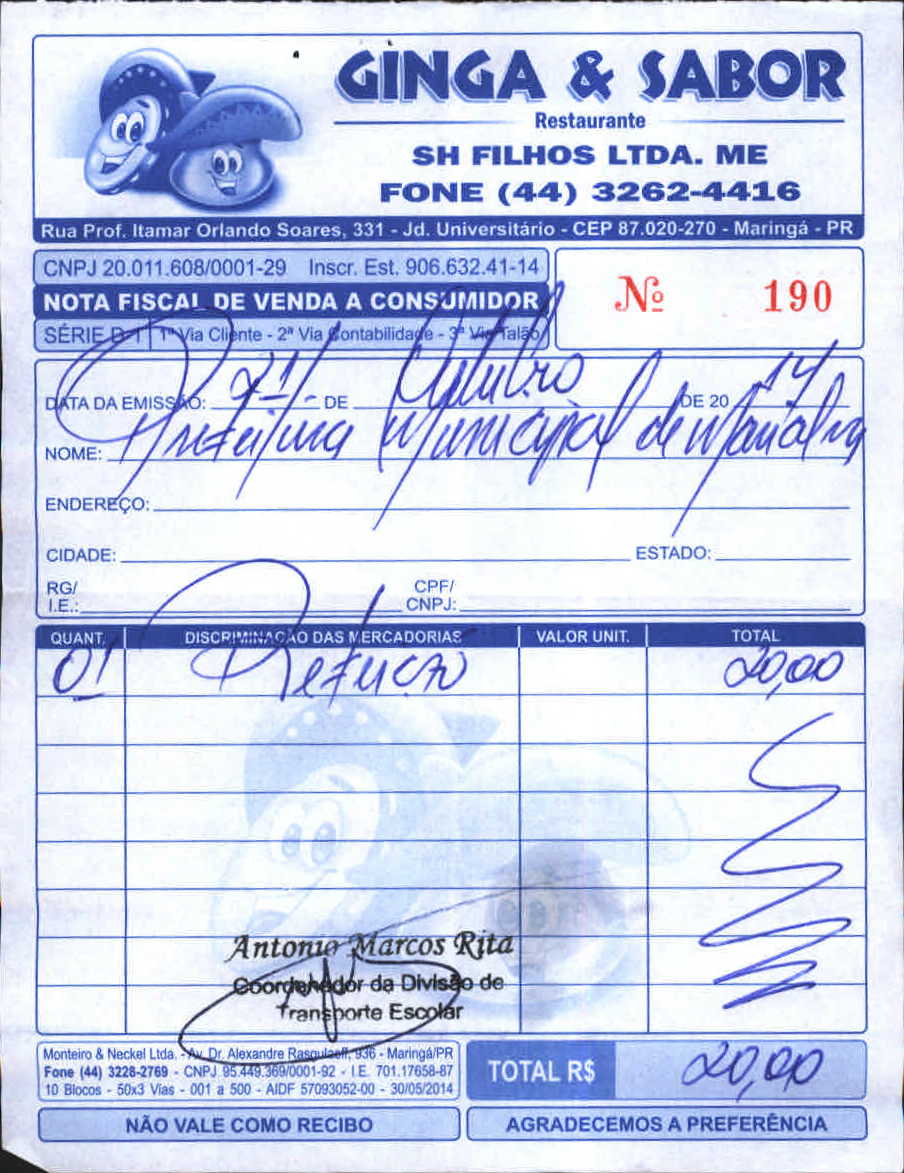 GINGA & SABOR
Restaurante
SH FILHOS LTDA. ME
FONE (44) 3262-4416
Rua Prof. Itamar Orlando Soares, 331 - Jd. Universitário - CEP 87.020-270 - Maringá - PR
CNPJ 20.011.608/0001-29 Inscr. Est. 906.632.41-14
NOTA FISCAL DE VENDA A CONSUMIDOR
Nº 190
SÉRIE D-1 1ª Via Cliente - 2ª Via Contabilidade - 3ª Via Talão
DATA DA EMISSÃO: 21 DE Outubro DE 20 14
NOME: Prefeitura Municipal de Marialva
ENDEREÇO:
CIDADE: ESTADO:
RG/ I.E.: CPF/ CNPJ:
QUANT. DISCRIMINAÇÃO DAS MERCADORIAS VALOR UNIT. TOTAL
01 Refeição 20,00
Antonio Marcos Rita
Coordenador da Divisão de
Transporte Escolar
Monteiro & Neckel Ltda. - Av. Dr. Alexandre Rasgulaeff, 936 - Maringá/PR
Fone (44) 3228-2769 - CNPJ 95.449.369/0001-92 - I.E. 701.17658-87
10 Blocos - 50x3 Vias - 001 a 500 - AIDF 57093052-00 - 30/05/2014
TOTAL R$ 20,00
NÃO VALE COMO RECIBO
AGRADECEMOS A PREFERÊNCIA